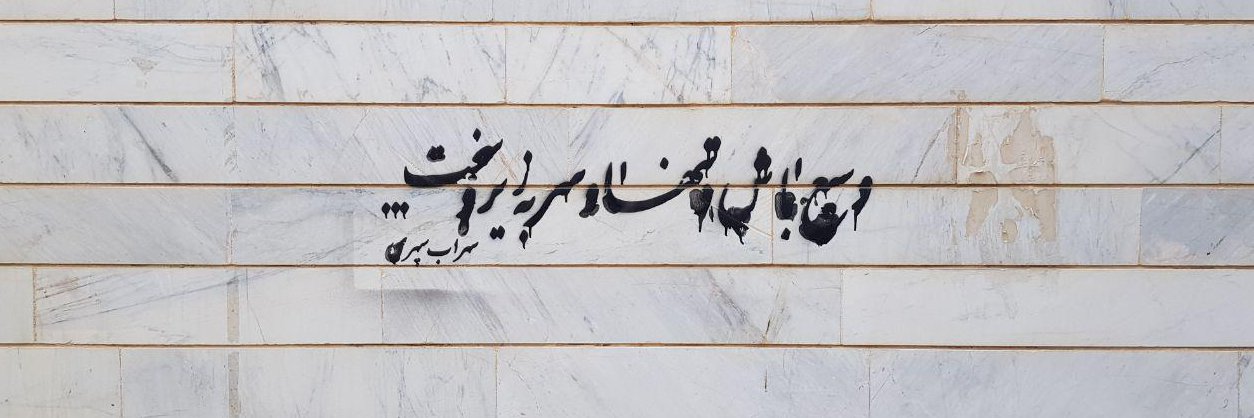 و سیع باش و تنها و سر به زیر و سخت...
سهراب سپهری